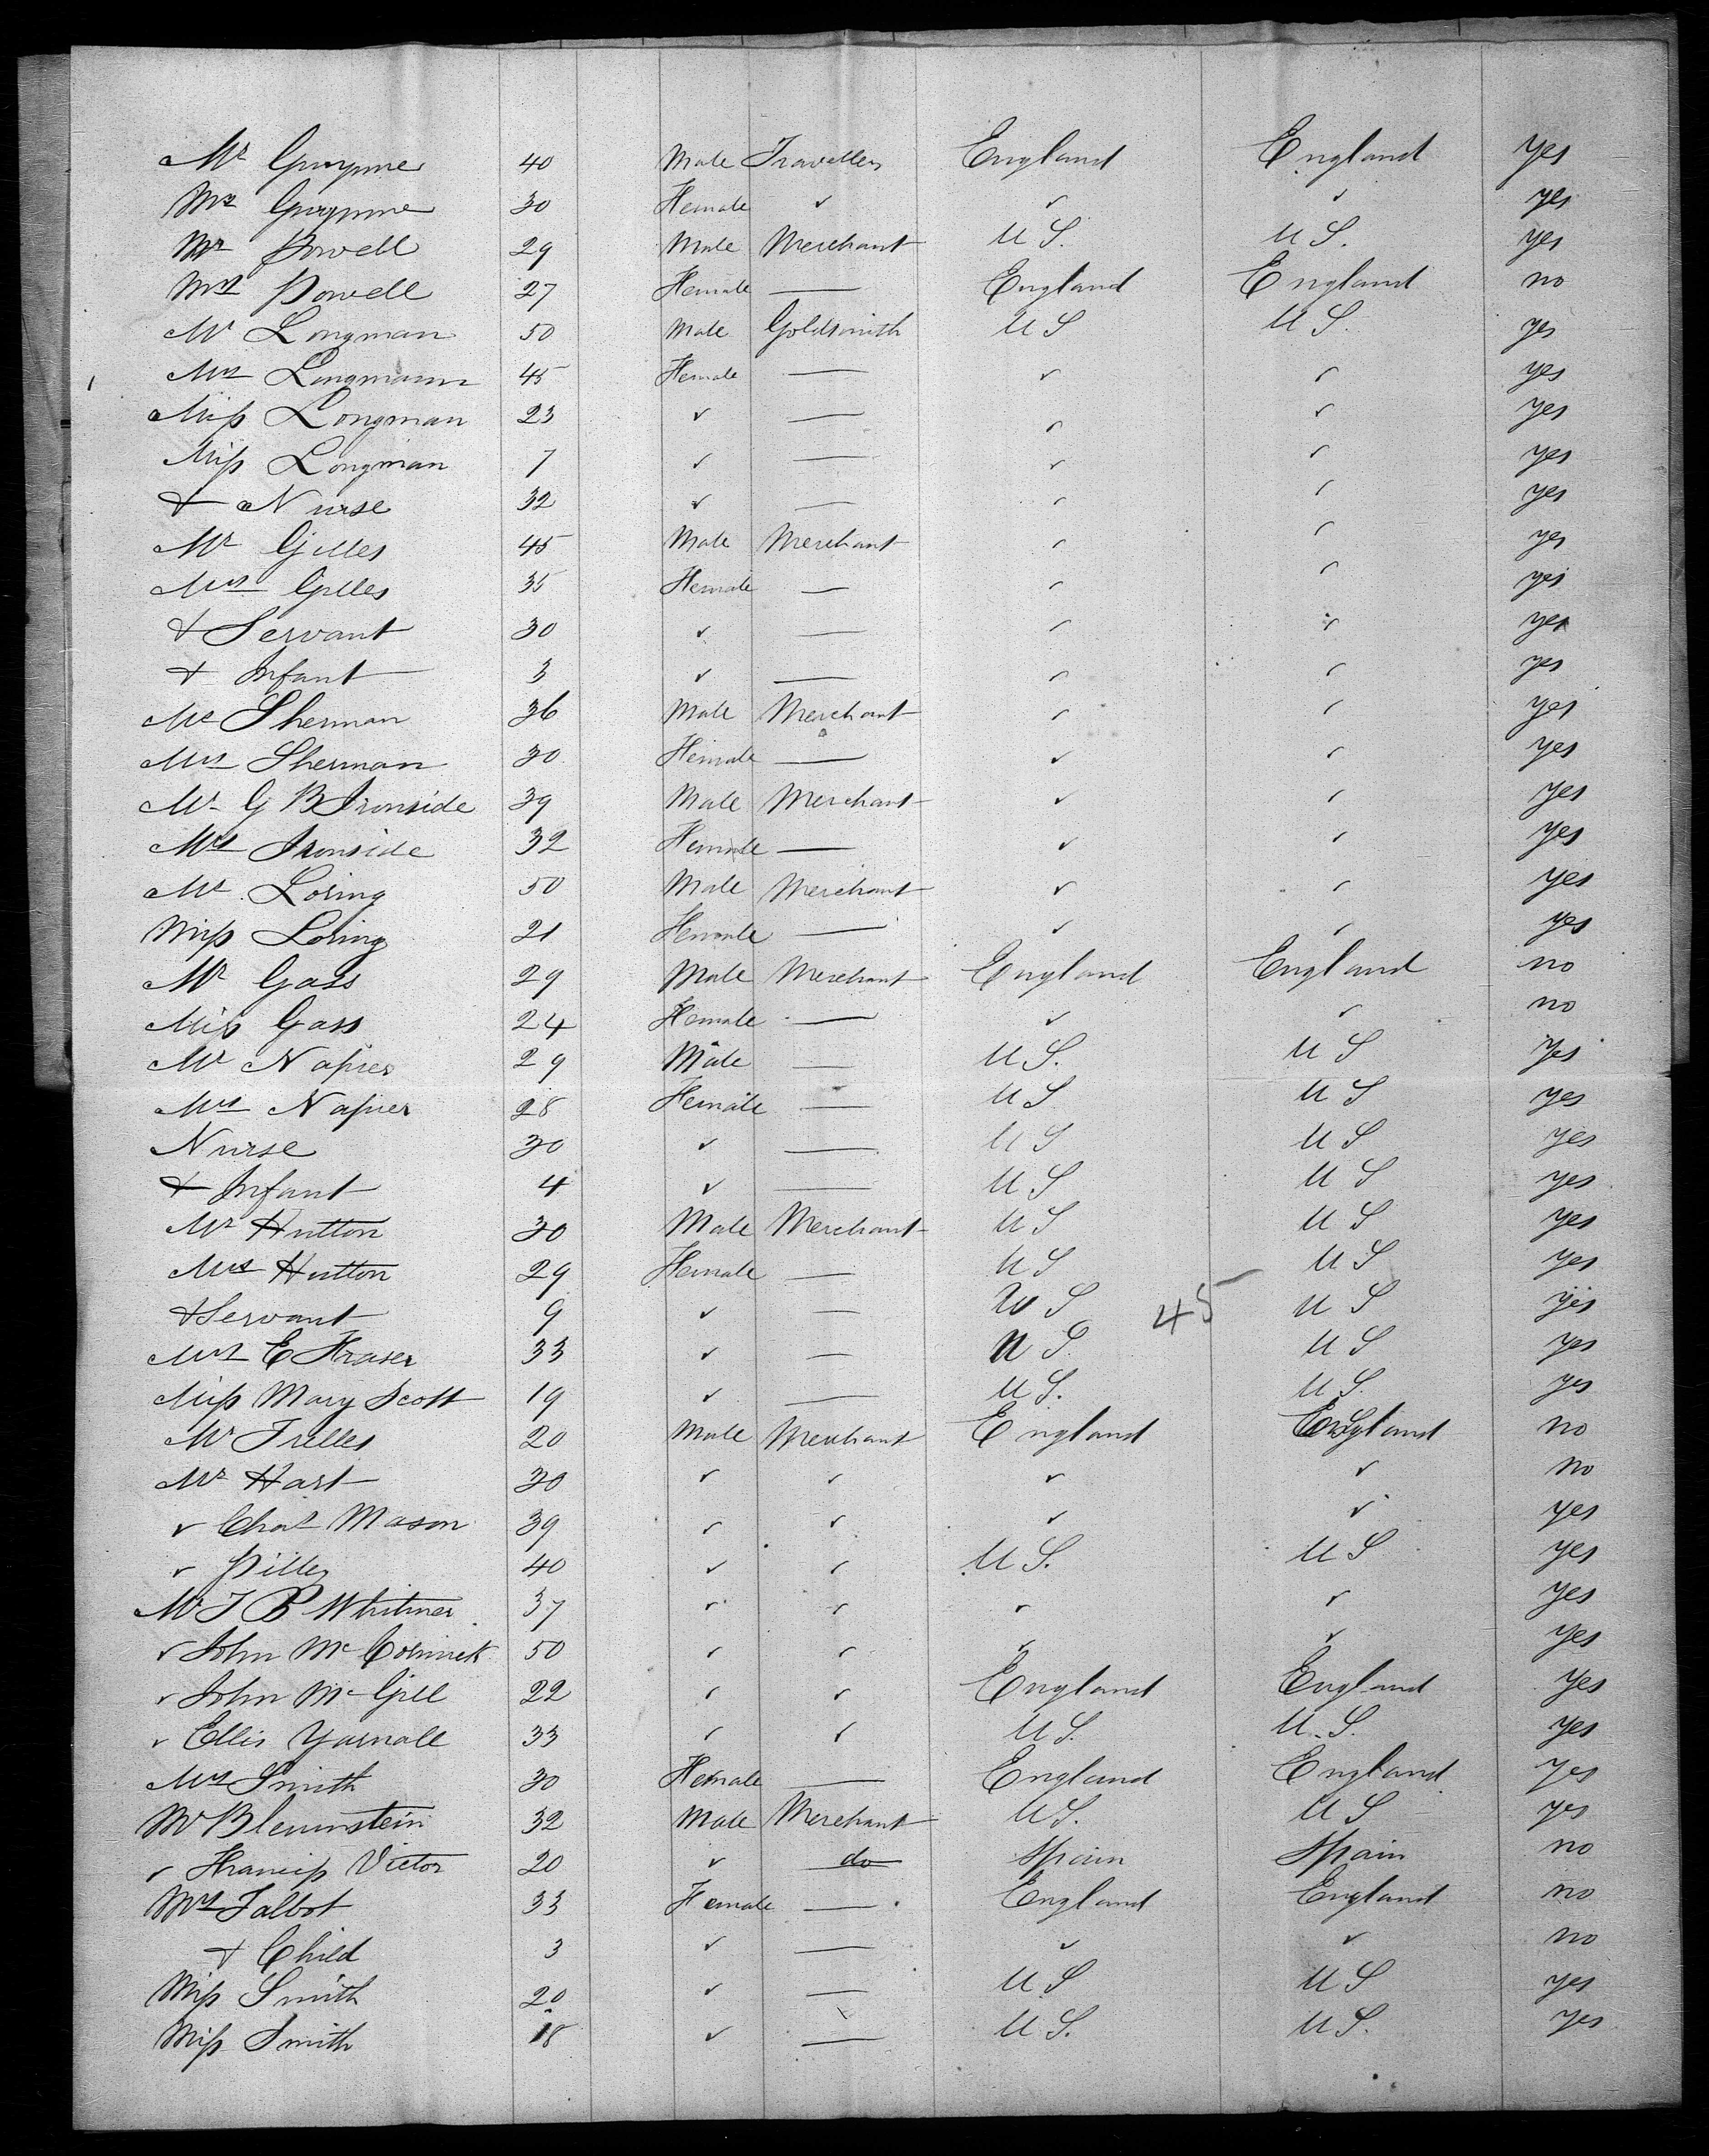 Mr Gwynne 40 Male Traveller England England yes
Mrs Gwynne 30 Female ✓ ✓ ✓ yes
Mr Powell 29 Male Merchant U S. U S. yes
Mrs Powell 27 Female — England England no
Mr Longman 50 Male Goldsmith U S U S. yes
Mrs Longman 45 Female — ✓ ✓ yes
Miss Longman 23 ✓ — ✓ ✓ yes
Miss Longman 7 ✓ — ✓ ✓ yes
+ Nurse 32 ✓ — ✓ ✓ yes
Mr Gilles 45 Male Merchant ✓ ✓ yes
Mrs Gilles 35 Female — ✓ ✓ yes
+ Servant 30 ✓ — ✓ ✓ yes
+ Infant 3 ✓ — ✓ ✓ yes
Mr Sherman 36 Male Merchant ✓ ✓ yes
Mrs Sherman 30 Female — ✓ ✓ yes
Mr G B Ironside 39 Male Merchant ✓ ✓ yes
Mrs Ironside 32 Female — ✓ ✓ yes
Mr Loring 50 Male Merchant ✓ ✓ yes
Miss Loring 21 Female — ✓ ✓ yes
Mr Gass 29 Male Merchant England England no
Miss Gass 24 Female — ✓ ✓ no
Mr Napier 29 Male — U S. U S yes
Mrs Napier 28 Female — U S U S yes
Nurse 30 ✓ — U S U S yes
+ Infant 4 ✓ — U S U S yes
Mr Hutton 30 Male Merchant U S U S yes
Mrs Hutton 29 Female — U S U S yes
+ Servant 9 ✓ — U S 45 U S yes
Mrs E Fraser 33 ✓ — U S. U S yes
Miss Mary Scott 19 ✓ — U S. U S. yes
Mr Trelles 20 Male Merchant England England no
Mr Hart 30 ✓ ✓ ✓ ✓ no
✓ Chas Mason 39 ✓ ✓ ✓ ✓ yes
✓ 40 ✓ ✓ U S. U S yes
Mr T B Whitmer 37 ✓ ✓ ✓ ✓ yes
✓ John Mc Cormick 50 ✓ ✓ ✓ ✓ yes
✓ John Mc Gill 22 ✓ ✓ England England yes
✓ Ellis Yarnall 33 ✓ ✓ U S. U. S. yes
Mrs Smith 30 Female — England England yes
Mr Blemnstein 32 Male Merchant U S. U S yes
✓ Francis Victor 20 ✓ do Spain Spain no
Mrs Talbot 33 Female — England England no
+ Child 3 ✓ — ✓ ✓ no
Miss Smith 20 ✓ — U S U S yes
Miss Smith 18 ✓ — U S. U S. yes